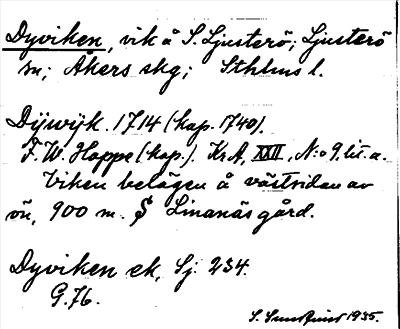 Dyviken, vik å S. Ljusterö; Ljusterö
sn; Åkers skg; Sthlms l.
Dijwijk. 1714 (kop. 1740).
F. W. Hoppe (kop.). KrA, XXII, N:o 9. lit. a.
Viken belägen å västsidan av
ön, 900 m. S Linanäs gård.
Dyviken ek, Sj: 234.
G. 76.
S. Sundquist 1935.